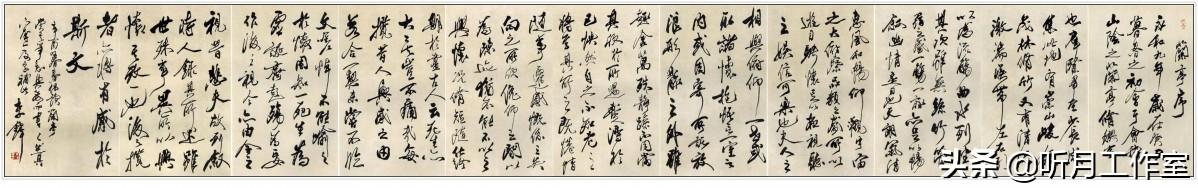 蘭亭序
永和九年歲在癸丑
暮春之初會于會稽
山陰之蘭亭脩禊事
也群賢畢至少長咸
集此地有崇山峻嶺
茂林脩竹又有清流
激湍暎帶左右引
以為流觴曲水列坐
其次雖無絲竹管弦之
盛一觴一詠亦足以暢
敘幽情是日也天朗氣清
惠風和暢仰觀宇宙
之大俯察品類之盛所以
遊目騁懷足以極視聽
之娛信可樂也夫人之
相與俯仰一世或
取諸懷抱悟言一室之
內或因寄所託放
浪形骸之外雖
趣舍萬殊靜躁不同當
其欣於所遇暫得於
己快然自足不知老之
將至及其所之既倦情
隨事遷感慨係之矣
向之所欣俛仰之間以
為陳迹猶不能不以之
興懷況脩短隨化終
期於盡古人云死生亦
大矣豈不痛哉每
攬昔人興感之由
若合一契未嘗不臨
文嗟悼不能喻之
於懷固知死生為
虛誕齊彭殤為妄
作後之視今亦由今之
視昔悲夫故列敘
時人錄其所述雖
世殊事異所以興
懷其致一也後之攬
者亦將有感於
斯文
头条 @听月工作室